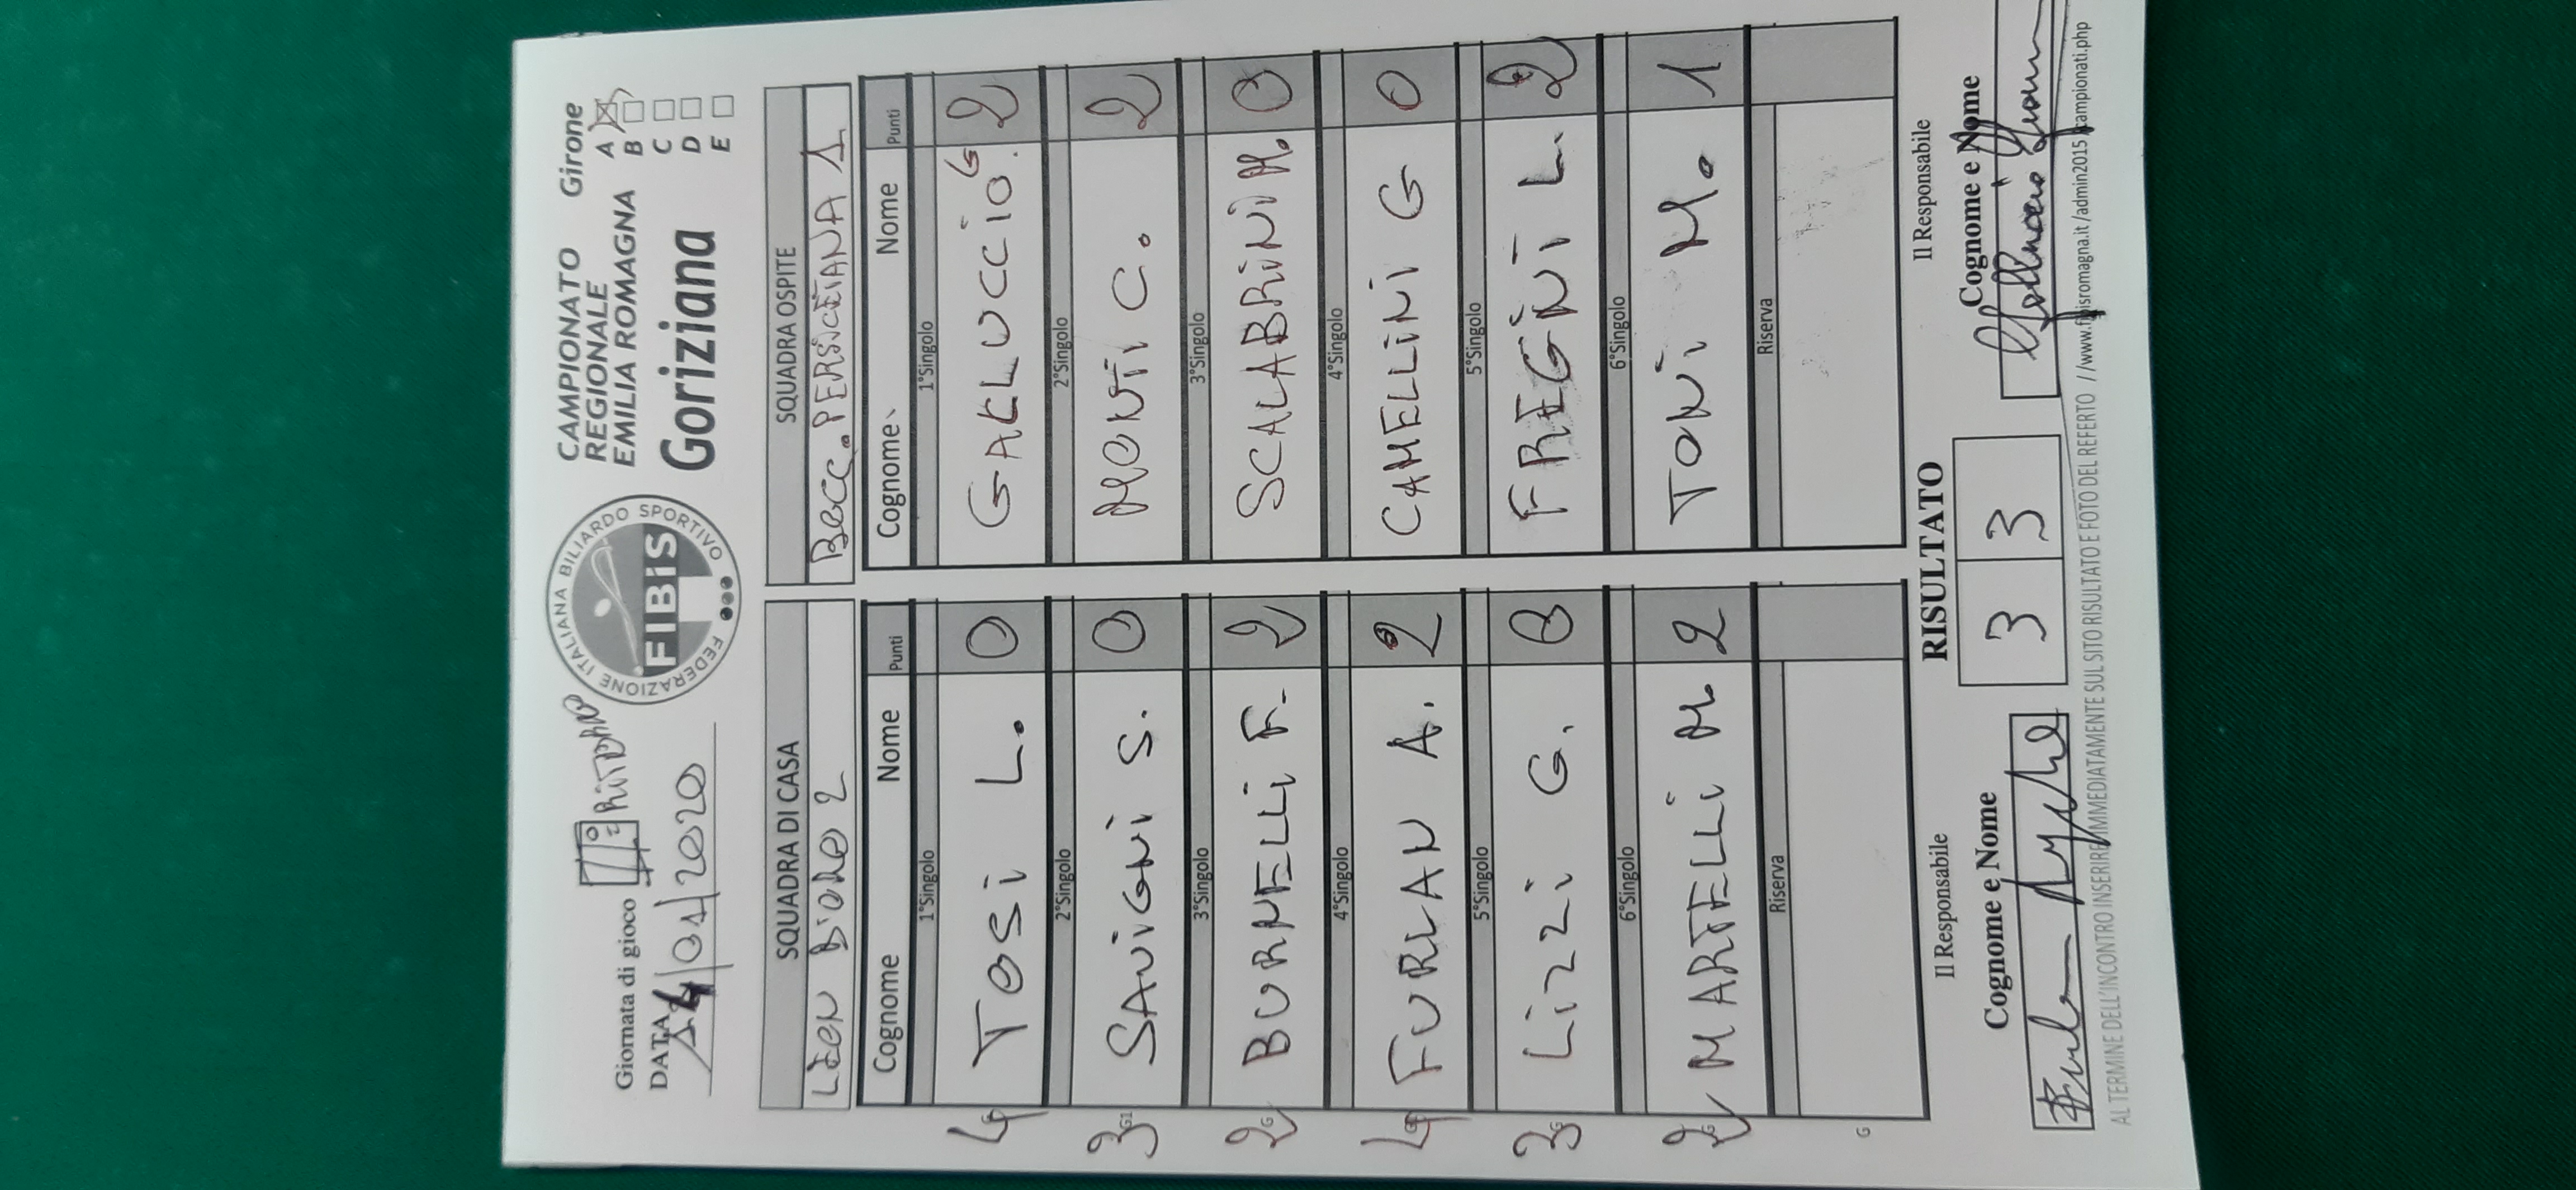 Giornata di gioco 1° RITORNO
DATA 14/01/2020
FEDERAZIONE ITALIANA BILIARDO SPORTIVO
FIBiS
CAMPIONATO
REGIONALE
EMILIA ROMAGNA
Goriziana
Girone
A
B
C
D
E
SQUADRA DI CASA SQUADRA OSPITE
BOCC. PERSICETANA 1
Cognome Nome Punti Cognome Nome Punti
1°Singolo 1°Singolo
4 TOSI L. 0 GALLUCCIO G. 2
2°Singolo 2°Singolo
3 G1 SAVIGNI S. 0 MONTI C. 2
3°Singolo 3°Singolo
2 G BURNELLI F. 2 SCALABRINI M. 0
4°Singolo 4°Singolo
4 FURLAN A. 2 CAMELLINI G 0
5°Singolo 5°Singolo
3 G LIZZI G. 0 FREGNI L. 2
6°Singolo 6°Singolo
2 G MARTELLI M. 2 TONI M. 1
Riserva Riserva
G
Il Responsabile RISULTATO Il Responsabile
Cognome e Nome 3 3 Cognome e Nome
AL TERMINE DELL'INCONTRO INSERIRE IMMEDIATAMENTE SUL SITO RISULTATO E FOTO DEL REFERTO //www.fibisromagna.it/admin2015/campionati.php